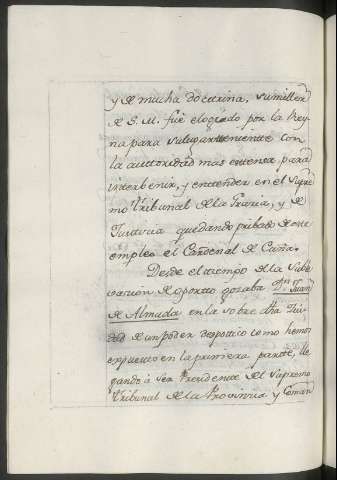 y de mucha doctrina, sumiller
de S. M. fué elogiado por la Rey-
na para su lugartheniente con
la auttoridad mas extensa para
interbenir, y entender en el Supre-
mo Tribunal de la Gracia, y de
Justicia quedando pribado de este
empleo el Cardenal de
Desde el tiempo de la suble-
vacion de oporto gozaba Dn. Juan
de Almada en la sobre dha Ciu-
dad de un poder despotico como hemos
expuesto en la primera parte, lle-
gando à ser Presidente del Supremo
Tribunal de la Provincia y Coman